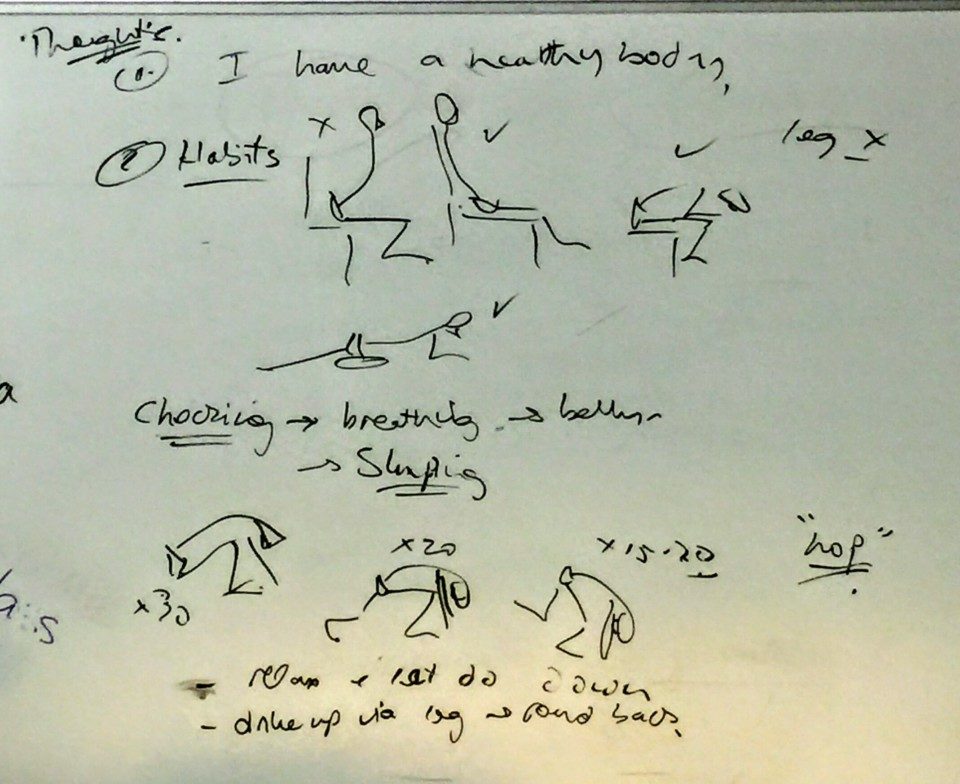 "Thoughts".
1. I have a healthy body,
2 Habits
leg x
Choosing → breathing → belly
→ Sleeping
x30
x20
x15-20
"hop"
- relax & let go down
- drive up via leg → round back.
a
.5